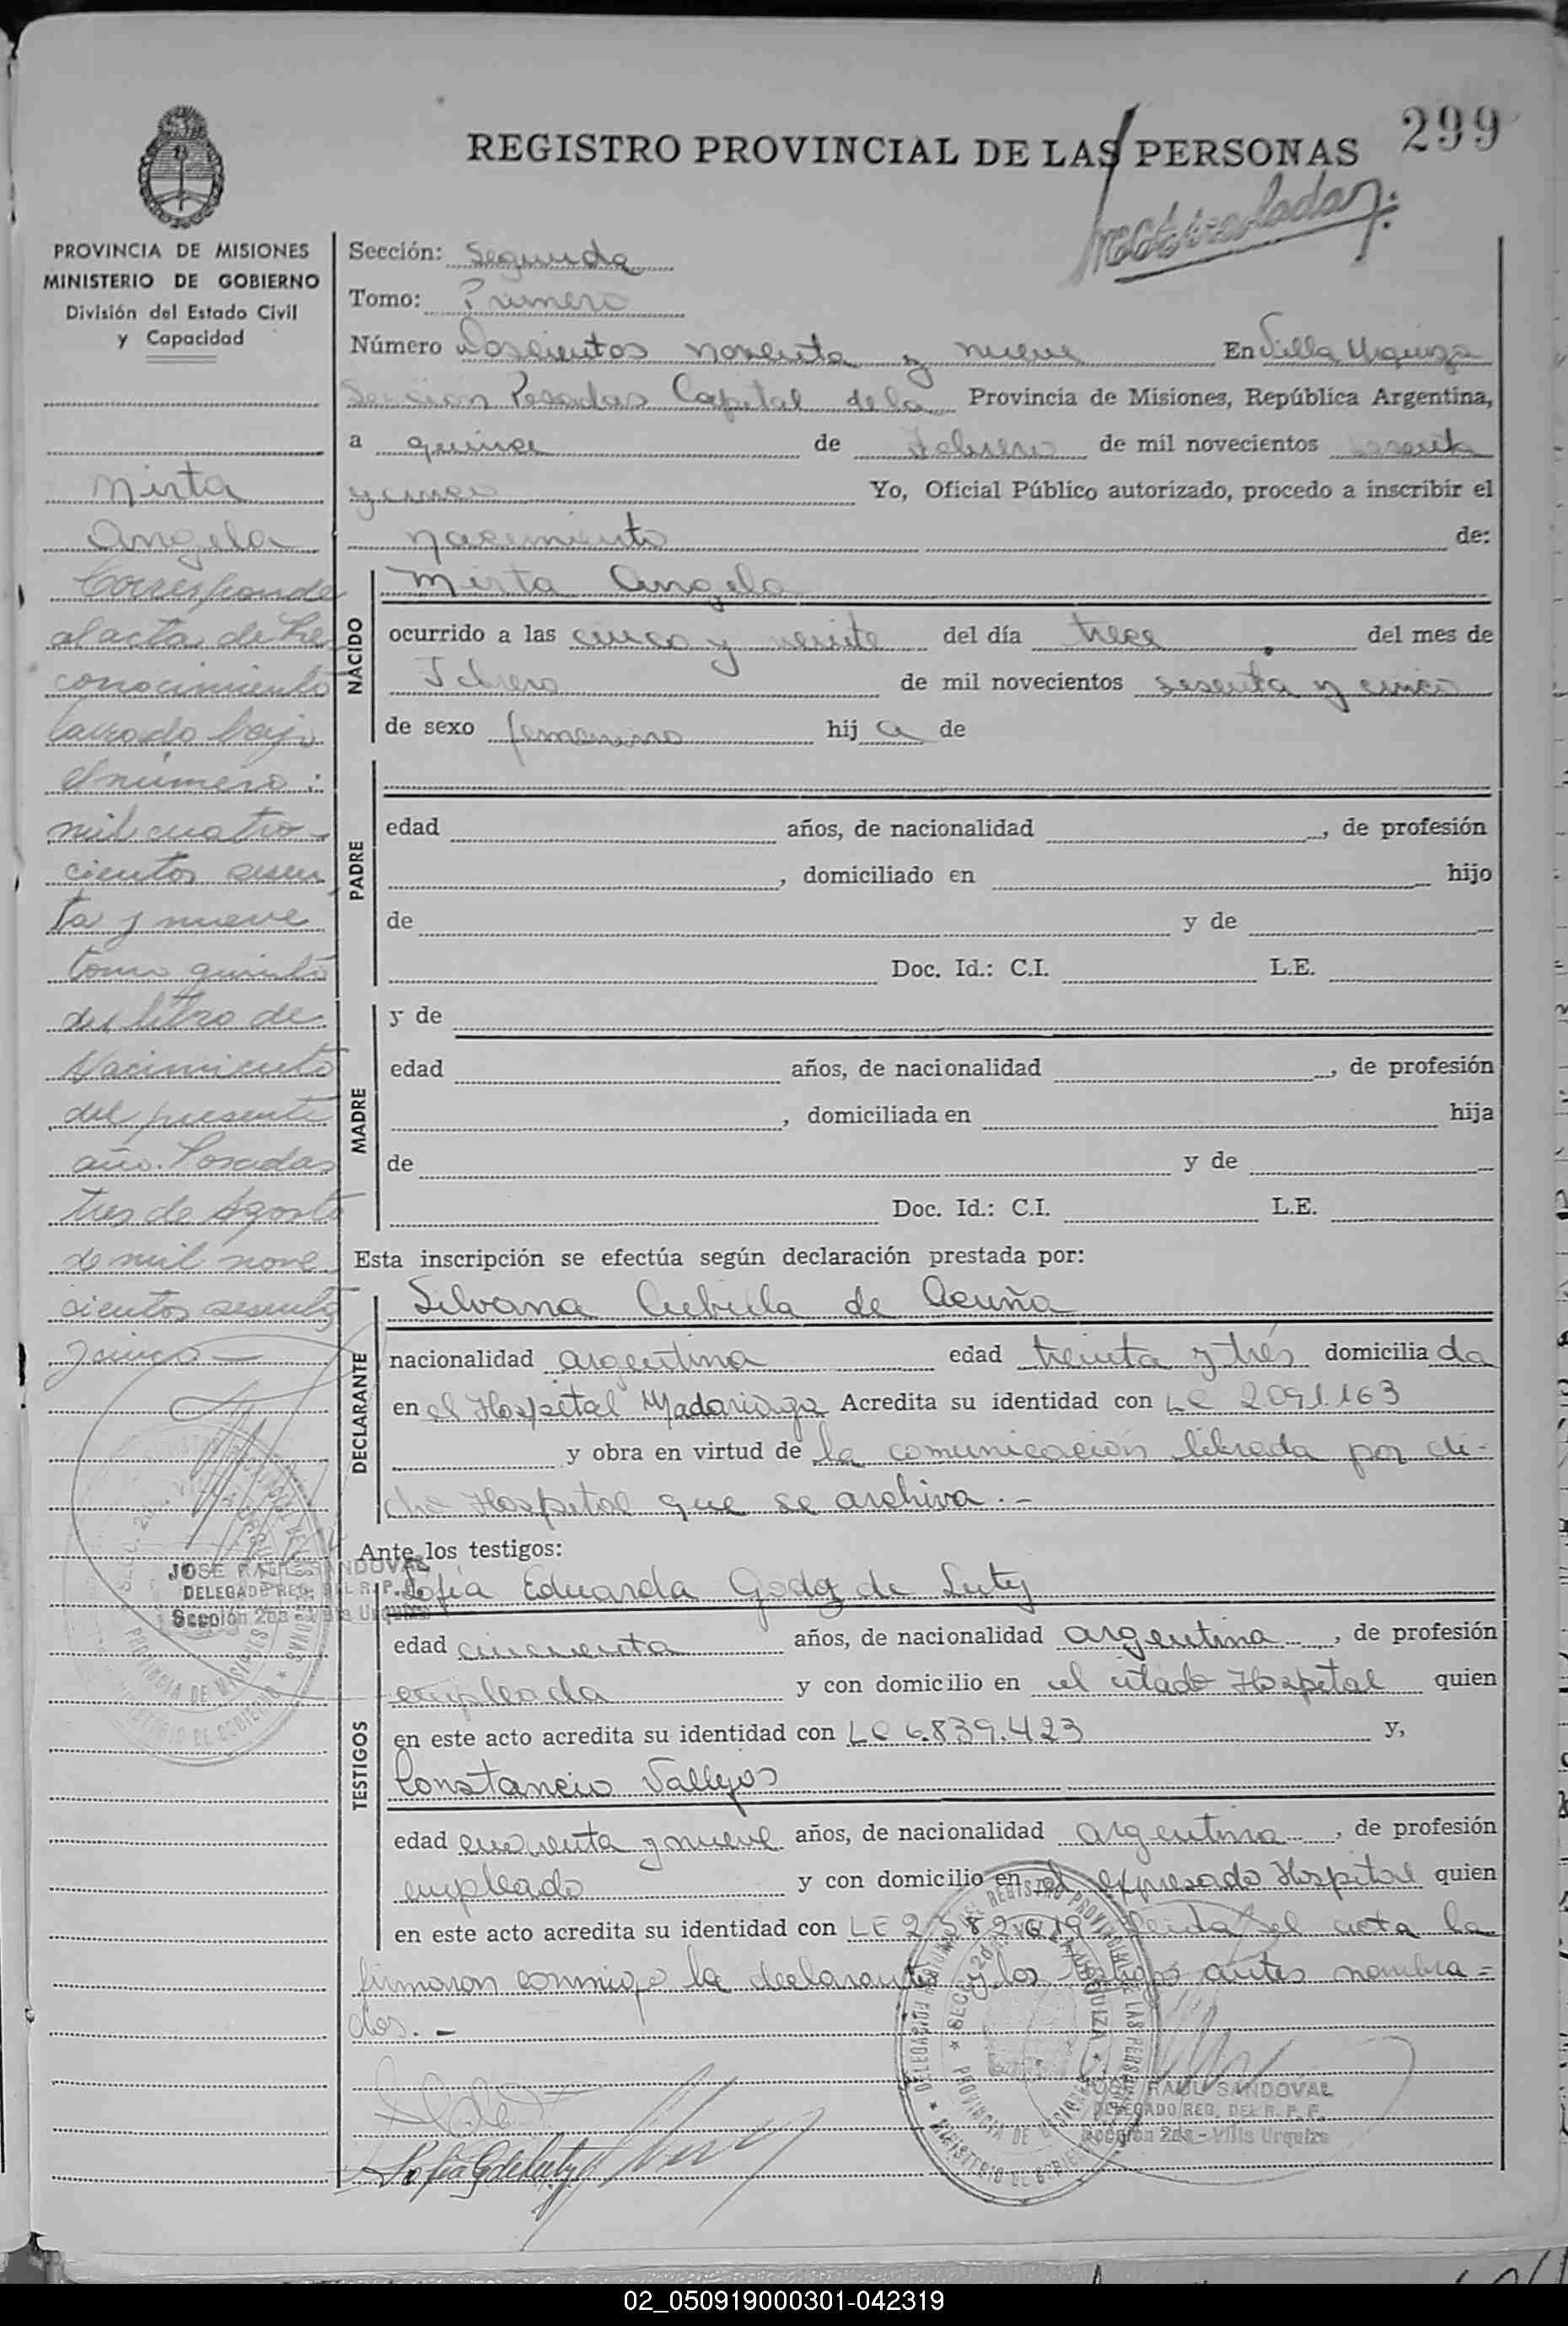 299
REGISTRO PROVINCIAL DE LAS PERSONAS
PROVINCIA DE MISIONES
MINISTERIO DE GOBIERNO
División del Estado Civil
y Capacidad
Mirta
Angela
Corresponde
al acta de Re
conocimiento
labrado bajo
el número:
mil cuatro-
cientos sesen
ta y nueve
tomo quinto
del libro de
Nacimiento
del presente
año. Posadas
tres de Agosto
de mil nove
cientos sesenta
y cinco —
JOSE RAUL SANDOVAL
DELEGADO REG. DEL R. P. P.
Sección 2da - Villa Urquiza
Sección: Segunda
Tomo: Primero
Número Doscientos noventa y nueve En Villa Urquiza
Sección Posadas Capital de la Provincia de Misiones, República Argentina,
a quince de Febrero de mil novecientos sesenta
y cinco Yo, Oficial Público autorizado, procedo a inscribir el
nacimiento de:
NACIDO
Mirta Angela
ocurrido a las cinco y veinte del día trece del mes de
Febrero de mil novecientos sesenta y cinco
de sexo femenino hij a de
PADRE
edad años, de nacionalidad , de profesión
, domiciliado en hijo
de y de
Doc. Id.: C.I. L.E.
MADRE
y de
edad años, de nacionalidad , de profesión
, domiciliada en hija
de y de
Doc. Id.: C.I. L.E.
Esta inscripción se efectúa según declaración prestada por:
DECLARANTE
Silvana de Acuña
nacionalidad argentina edad treinta y trés domicilia da
en el Hospital Madariaga Acredita su identidad con LC 2091.163
y obra en virtud de la comunicación librada por di-
cho Hospital que se archiva.-
Ante los testigos:
TESTIGOS
Sofia Eduarda Godoy de Luty
edad cincuenta años, de nacionalidad argentina , de profesión
empleada y con domicilio en el citado Hospital quien
en este acto acredita su identidad con LC 6.839.423 y,
Constancio Vallejos
edad cuarenta y nueve años, de nacionalidad argentina , de profesión
empleado y con domicilio en el expresado Hospital quien
en este acto acredita su identidad con LE 2582619 Leida el acta la
firmaron conmigo la declarante y los testigos antes nombra=
dos.-
Sofia G de Luty
JOSE RAUL SANDOVAL
DELEGADO REG. DEL R. P. P.
Sección 2da - Villa Urquiza
02_050919000301-042319